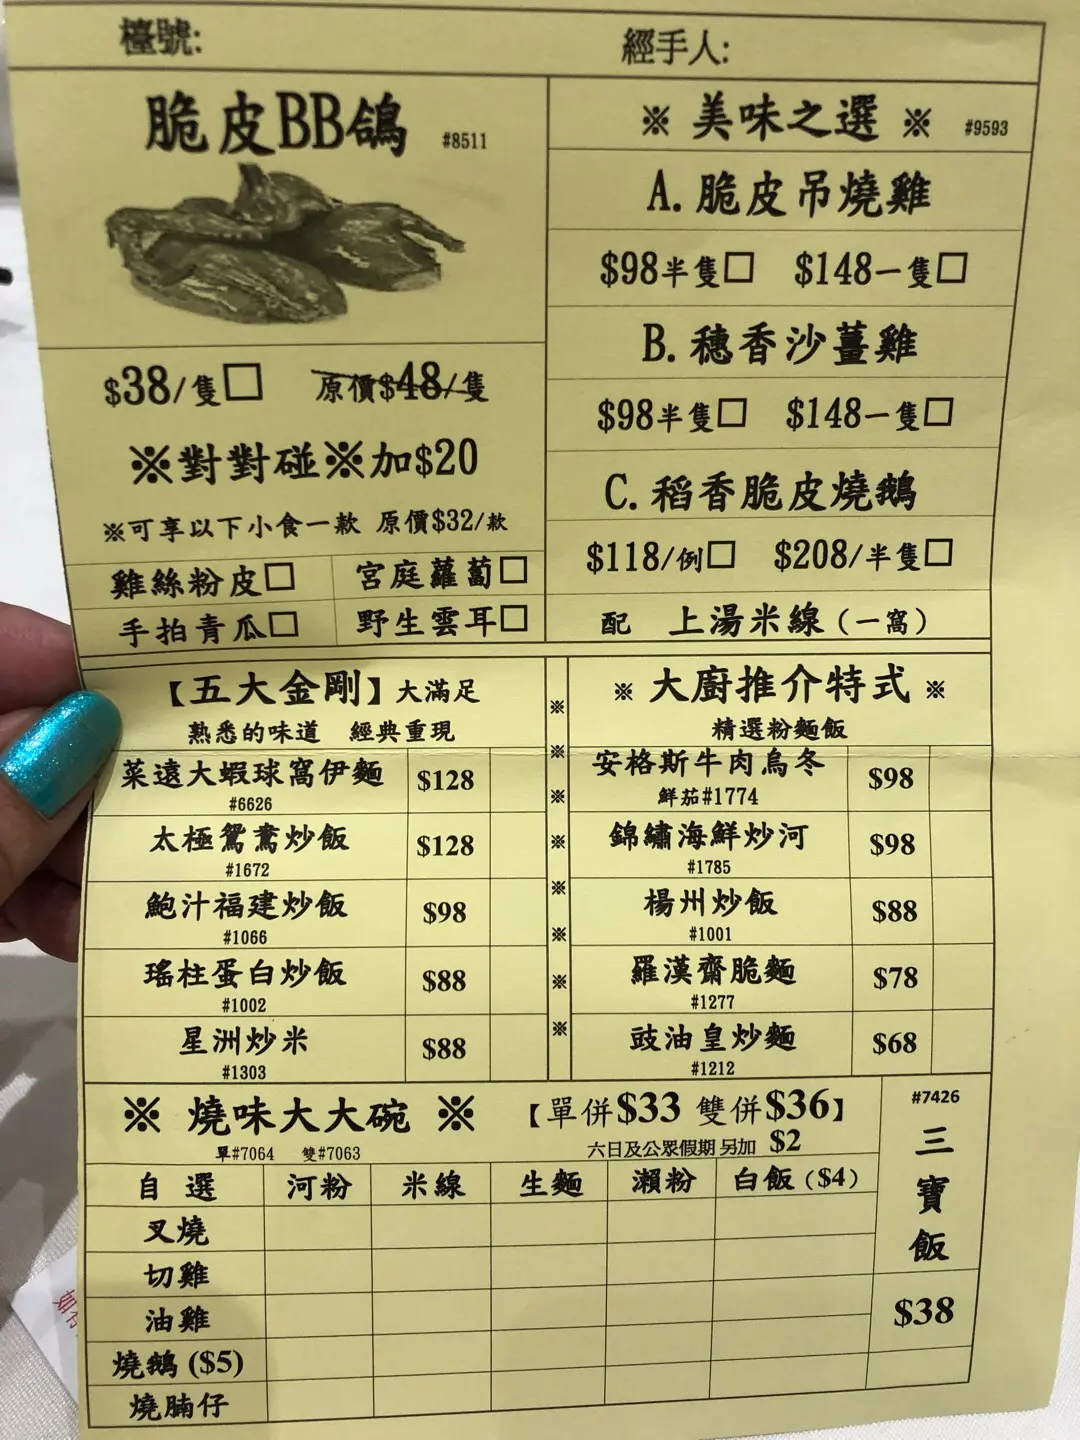 檯號:
經手人:
脆皮BB鴿 #8511
$38/隻□ 原價$48/隻
※對對碰※加$20
※可享以下小食一款 原價$32/款
雞絲粉皮□ 宮庭蘿蔔□
手拍青瓜□ 野生雲耳□
※ 美味之選 ※ #9593
A.脆皮吊燒雞
$98半隻□ $148一隻□
B.穗香沙薑雞
$98半隻□ $148一隻□
C.稻香脆皮燒鵝
$118/例□ $208/半隻□
配 上湯米線(一窩)
【五大金剛】大滿足
熟悉的味道 經典重現
菜遠大蝦球窩伊麵 $128
#6626
太極鴛鴦炒飯 $128
#1672
鮑汁福建炒飯 $98
#1066
瑤柱蛋白炒飯 $88
#1002
星洲炒米 $88
#1303
※
※
※
※
※
※
※
※
※ 大廚推介特式 ※
精選粉麵飯
安格斯牛肉烏冬 $98
鮮茄#1774
錦繡海鮮炒河 $98
#1785
楊州炒飯 $88
#1001
羅漢齋脆麵 $78
#1277
豉油皇炒麵 $68
#1212
※ 燒味大大碗 ※ 【單併$33 雙併$36】
單#7064 雙#7063 六日及公眾假期 另加 $2
自選 河粉 米線 生麵 瀨粉 白飯($4)
叉燒
切雞
油雞
燒鵝($5)
燒腩仔
#7426
三寶飯
$38